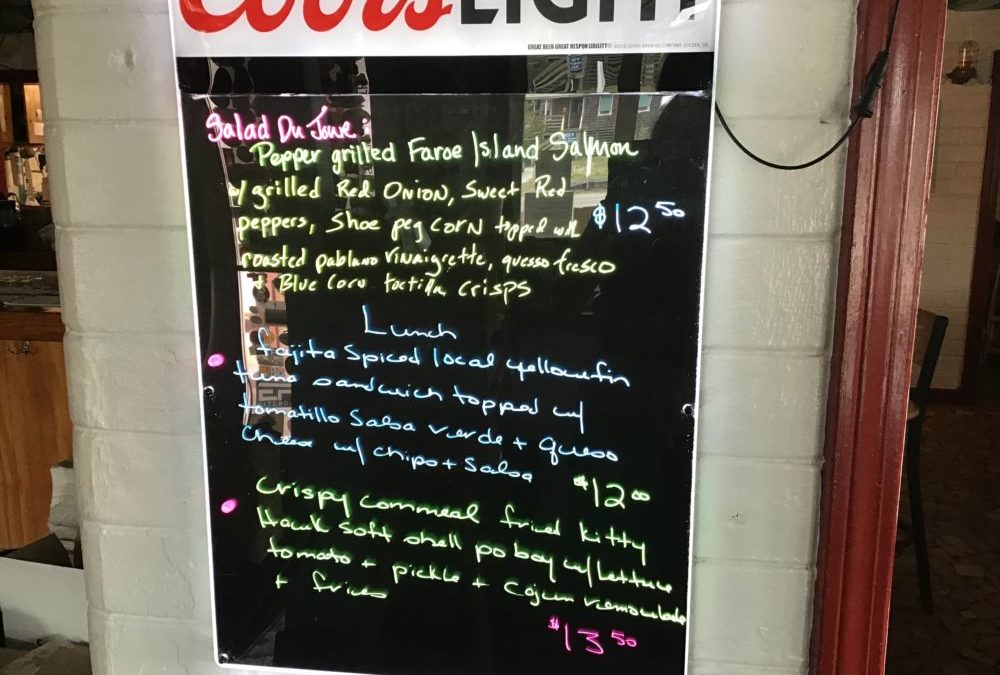 Coors LIGHT
GREAT BEER GREAT RESPONSIBILITY
Salad Du Jour:
Pepper grilled Faroe Island Salmon
w/ grilled Red Onion, Sweet Red
peppers, Shoe peg Corn topped with
$12.50
roasted pablano vinaigrette, quesso fresco
+ Blue Corn tortilla crisps
Lunch
fajita spiced local yellowfin
tuna sandwich topped w/
tomatillo Salsa verde + queso
cheese w/ chips + salsa
$12.00
Crispy cornmeal fried kitty
Hawk soft shell po boy w/ lettuce
tomato + pickle + Cajun remoulade
+ fries
$13.50